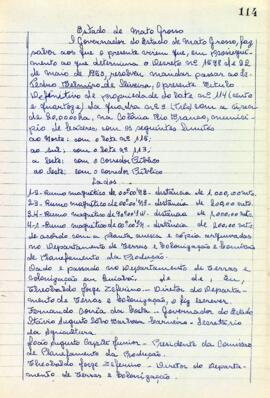 114
Estado de Mato Grosso
O Governador do Estado de Mato Grosso, faz
saber aos que o presente virem que, em
ao que determina o Decreto nº 1598 de 22
de maio de 1953, resolveu mandar passar ao Sr.
Pedro de Oliveira, o presente Titulo
Definitivo de propriedade do Lote nº 114 (cento
e quatorze) da quadra nº 3 (três) com a área
de 20,0000 ha, na Colônia Rio Branco, municí-
pio de Cáceres com os seguintes limites
ao Norte: com o lote nº 115;
ao sul: com o lote nº 113;
a Leste: com o corredor Público
ao oeste: com o corredor Público
Lados
1-2. Rumo magnético de distância de 1.000,00 mts.
2-3. Rumo magnético de distância de 200,00 mts.
3-4. Rumo magnético de distância de 1.000,00 mts.
4-1. Rumo magnético de distância de 200,00 mts.
de acordo com a planta anexa e cópia arquivadas
no Departamento de Terras e Colonização e Comissão
de Planejamento da Produção.
Dado e passado no Departamento de Terras e
Colonização em Cuiabá, de de 1. Eu,
Theobaldo Jorge Zeferino - Diretor do Departa-
mento de Terras e Colonização, o fiz escrever.
Fernando Corrêa da Costa - Governador do Estado
Augusto - Secretário
da Agricultura
João Augusto Capilé Junior - Presidente da Comissão
de Planejamento da Produção.
Theobaldo Jorge Zeferino - Diretor do Departa-
mento de Terras e Colonização.